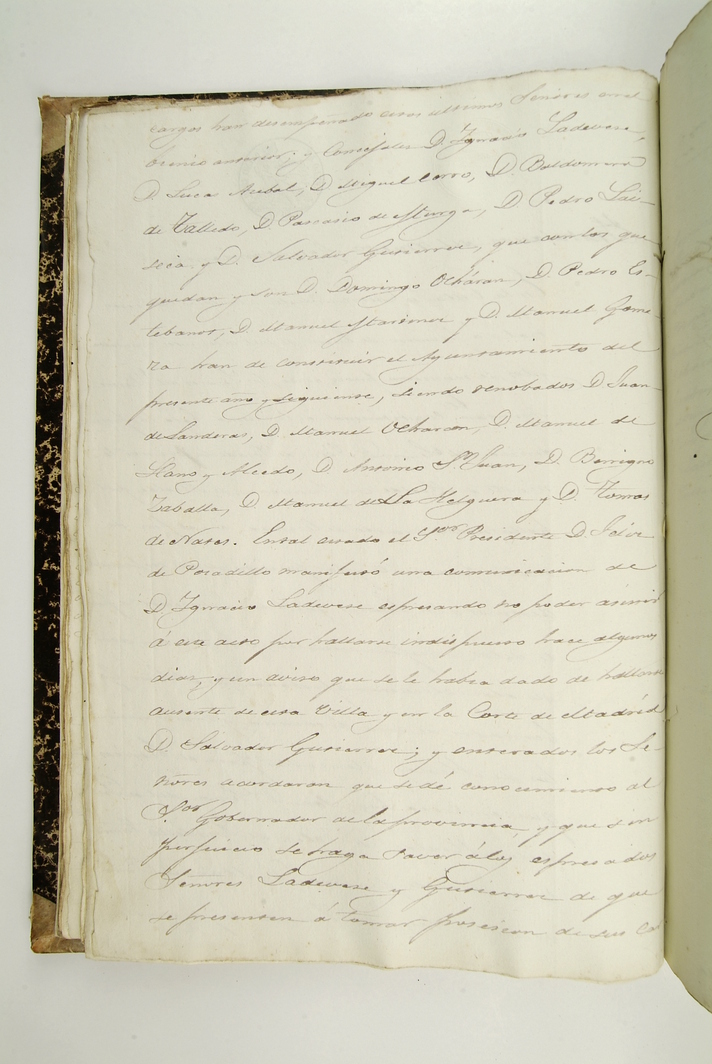 cargos han desempeñado estos ultimos Señores en el
bienio anterior; y Consejales D. Ygnacio Ladevese,
D. Luca Arebal, D. Miguel Corro, D. Baldomero
de Talledo, D. Pascasio de Yturza, D. Pedro Lai-
seca y D. Salvador Gutierrez, que con los que
quedan y son D. Domingo Ocháran, D. Pedro Es-
tebanot, D. Manuel Martinez y D. Manuel Gome-
za han de constituir el Ayuntamiento del
presente año y siguiente, siendo renobados D. Juan
de Landeras, D. Manuel Ocharan, D. Manuel de
Llano y Alcedo, D. Antonio Sn. Juan, D. Benigno
Zaballa, D. Manuel de La Helguera y D. Tomas
de Nates. En tal estado el Sor. Presidente D. Felix
de Posadillo manifestó una comunicacion de
D. Ygnacio Ladevese espresando no poder asistir
á este acto por hallarse indispuesto hace algunos
dias, y un aviso que se le habia dado de hallarse
ausente de esta Villa y en la Corte de Madrid
D. Salvador Gutierrez; y enterados los Se-
ñores acordaron que se dé conocimiento al
Sor. Gobernador de la provincia, y que sin
perjuicio se haga saver á los espresados
Señores Ladevese y Gutierrez de que
se presenten á tomar posesion de sus Ca